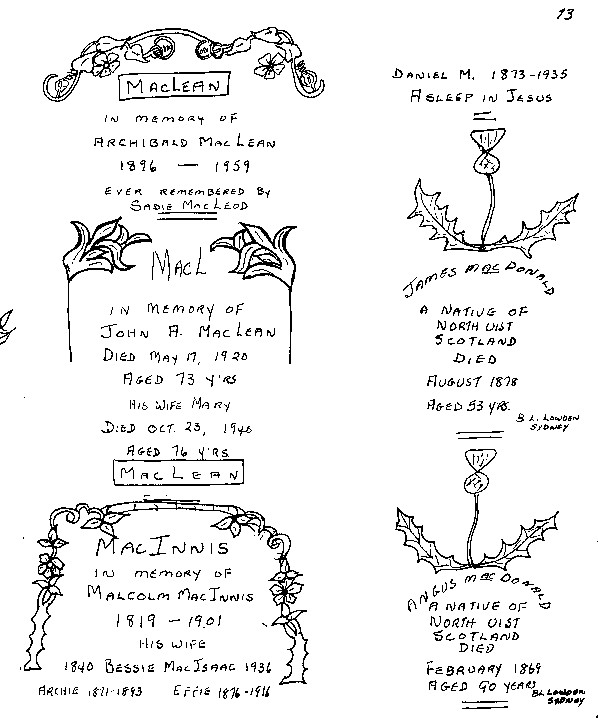 13
MACLEAN
IN MEMORY OF
ARCHIBALD MACLEAN
1896 — 1959
EVER REMEMBERED BY
SADIE MACLEOD
MACL
IN MEMORY OF
JOHN A. MACLEAN
DIED MAY 17, 1920
AGED 73 Y'RS
HIS WIFE MARY
DIED OCT. 23, 1940
AGED 76 Y'RS
MACLEAN
MACINNIS
IN MEMORY OF
MALCOLM MACINNIS
1819 – 1901
HIS WIFE
1840 BESSIE MACISAAC 1936
ARCHIE 1871-1893 EFFIE 1876-1916
DANIEL M. 1873-1935
ASLEEP IN JESUS
JAMES MACDONALD
A NATIVE OF
NORTH UIST
SCOTLAND
DIED
AUGUST 1878
AGED 53 YRS.
B.L. LOWDEN
SYDNEY
ANGUS MACDONALD
A NATIVE OF
NORTH UIST
SCOTLAND
DIED
FEBRUARY 1869
AGED 90 YEARS
B.L. LOWDEN
SYDNEY